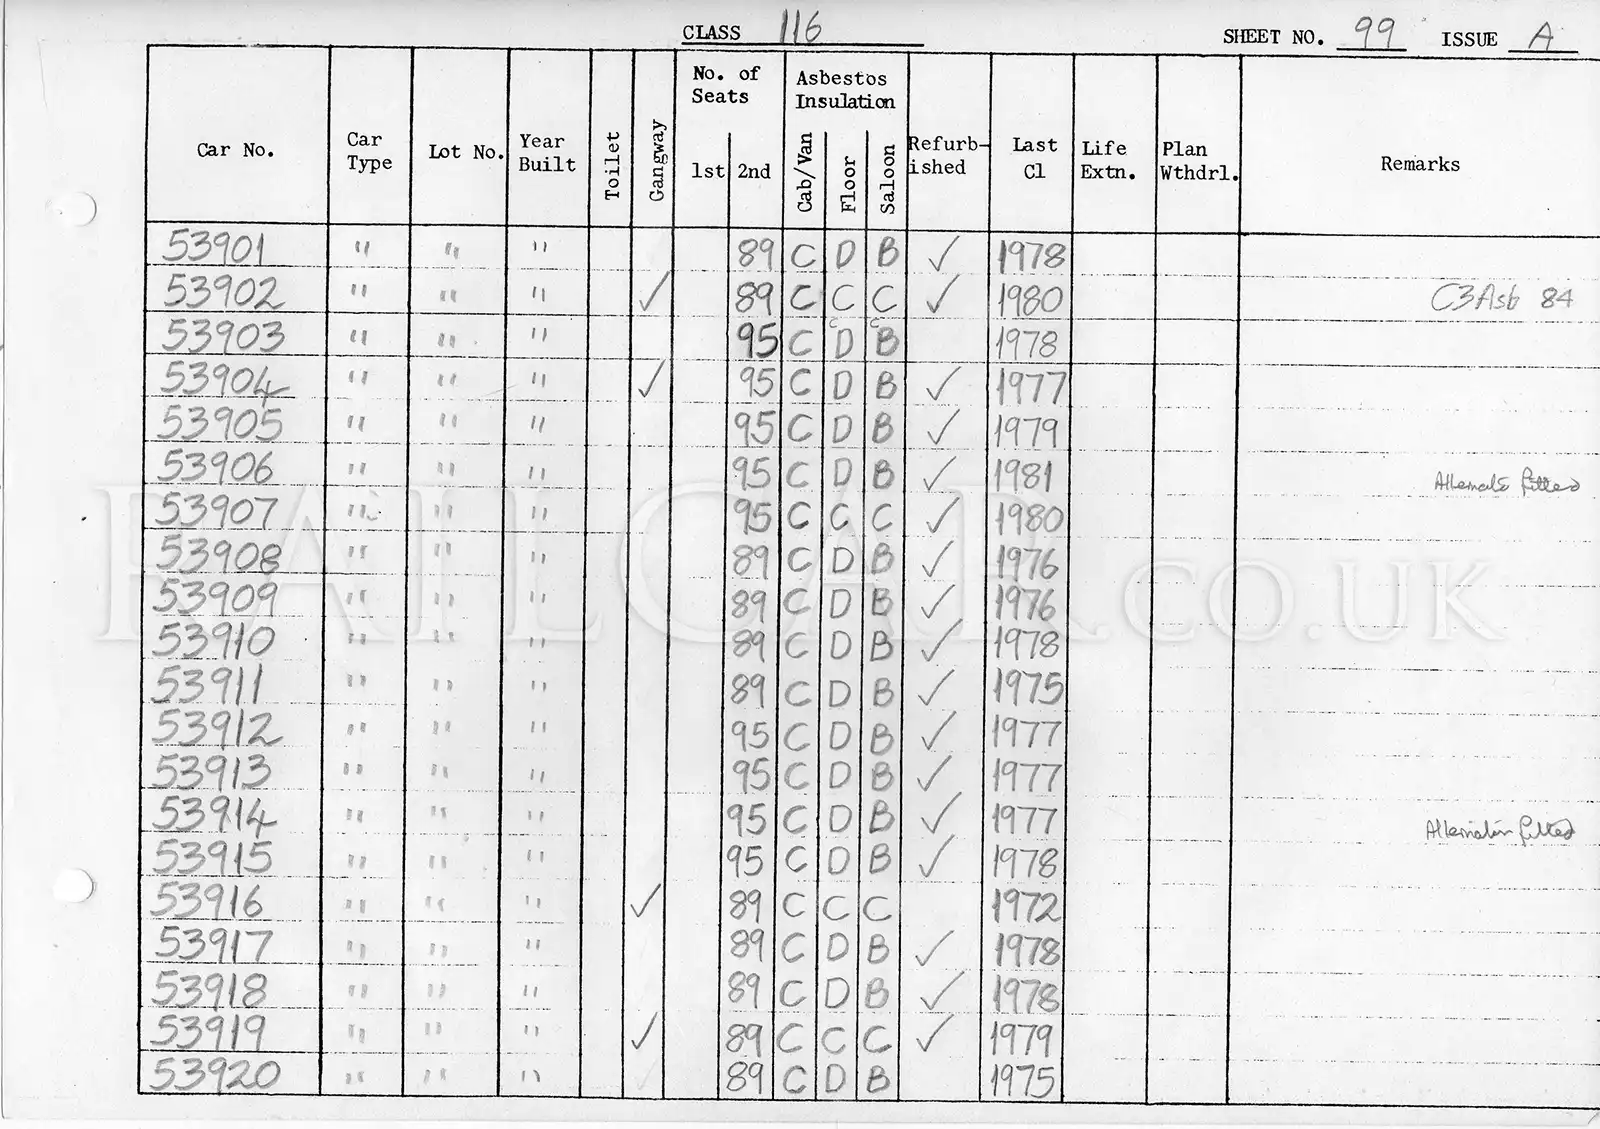 CLASS 116 SHEET NO. 99 ISSUE A
Car No. Car Type Lot No. Year Built Toilet Gangway No. of Seats 1st 2nd Asbestos Insulation Cab/Van Floor Saloon Refurb-ished Last Cl Life Extn. Plan Wthdrl. Remarks
53901 " " " 89 C D B ✓ 1978
53902 " " " ✓ 89 C C C ✓ 1980 C3 Asb 84
53903 " " " 95 C D C B C 1978
53904 " " " ✓ 95 C D B ✓ 1977
53905 " " " 95 C D B ✓ 1979
53906 " " " 95 C D B ✓ 1981 fitted
53907 " " " 95 C C C ✓ 1980
53908 " " " 89 C D B ✓ 1976
53909 " " " 89 C D B ✓ 1976
53910 " " " 89 C D B ✓ 1978
53911 " " " 89 C D B ✓ 1975
53912 " " " 95 C D B ✓ 1977
53913 " " " 95 C D B ✓ 1977
53914 " " " 95 C D B ✓ 1977 Alternator fitted
53915 " " " 95 C D B ✓ 1978
53916 " " " ✓ 89 C C C 1972
53917 " " " 89 C D B ✓ 1978
53918 " " " 89 C D B ✓ 1978
53919 " " " ✓ 89 C C C ✓ 1979
53920 " " " 89 C D B 1975
RAILCAR.CO.UK